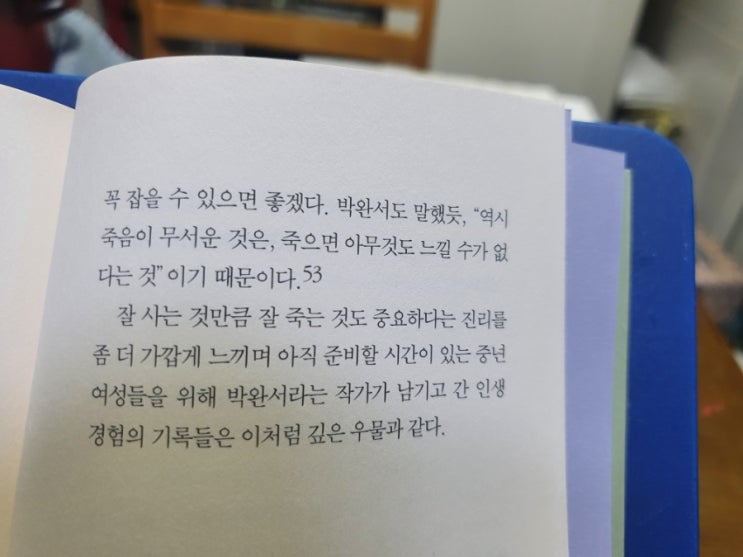 꼭 잡을 수 있으면 좋겠다. 박완서도 말했듯, “역시
죽음이 무서운 것은, 죽으면 아무것도 느낄 수가 없
다는 것”이기 때문이다.53
잘 사는 것만큼 잘 죽는 것도 중요하다는 진리를
좀 더 가깝게 느끼며 아직 준비할 시간이 있는 중년
여성들을 위해 박완서라는 작가가 남기고 간 인생
경험의 기록들은 이처럼 깊은 우물과 같다.